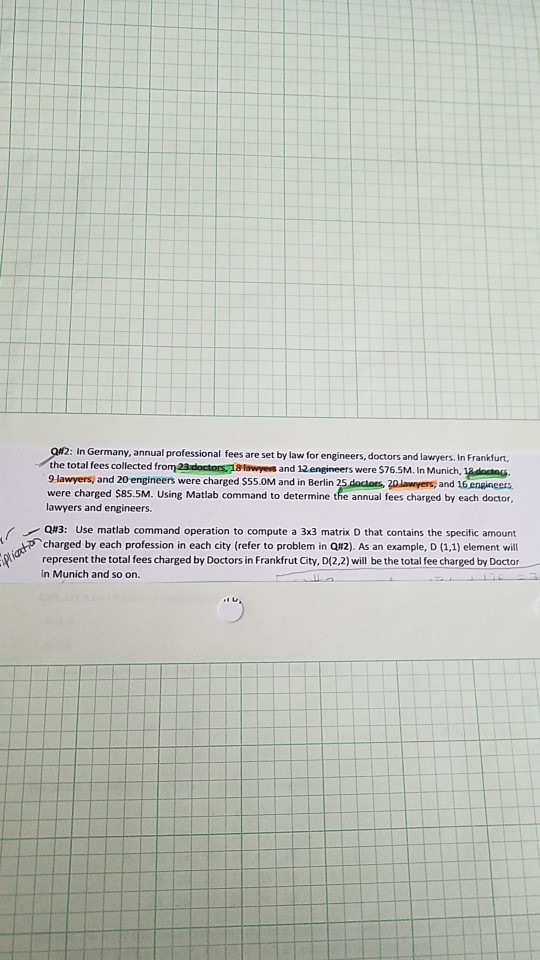 Q#2: In Germany, annual professional fees are set by law for engineers, doctors and lawyers. In Frankfurt,
the total fees collected from 23 doctors, 18 lawyers and 12 engineers were $76.5M. In Munich, 18 doctors,
9 lawyers, and 20 engineers were charged $55.0M and in Berlin 25 doctors, 20 lawyers, and 16 engineers
were charged $85.5M. Using Matlab command to determine the annual fees charged by each doctor,
lawyers and engineers.
Q#3: Use matlab command operation to compute a 3x3 matrix D that contains the specific amount
charged by each profession in each city (refer to problem in Q#2). As an example, D (1,1) element will
represent the total fees charged by Doctors in Frankfrut City, D(2,2) will be the total fee charged by Doctor
in Munich and so on.